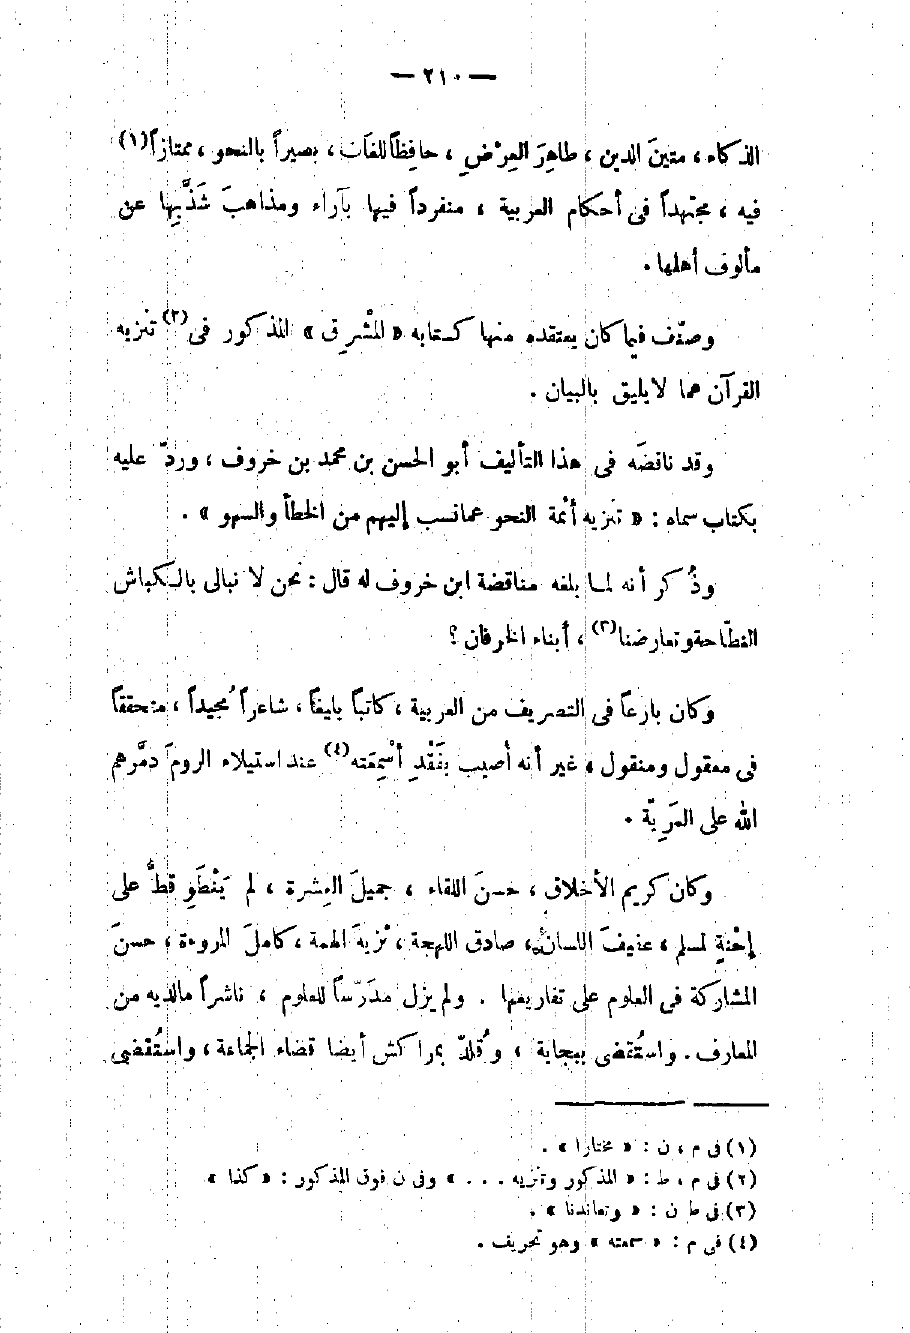 — ٢١٠ —
الذكاء ، متينَ الدين ، طاهِرَ العِرْضِ ، حافِظاً للغات ، بصيراً بالنحو ، ممتازاً(١)
فيه ، مجتهداً فى أحكام العربية ، منفرداً فيها بآراء ومذاهبَ شَذَّ بِها عن
مألوف أهلها .
وصنّف فيما كان يعتقده منها كتابه « المُشْرِق » المذكور فى(٢) تنزيه
القرآن عما لا يليق بالبيان .
وقد ناقضَه فى هذا التأليف أبو الحسن بن محمد بن خروف ، وردّ عليه
بكتاب سماه : « تنزيه أئمة النحو عما نسب إليهم من الخطأ والسهو » .
وذُكر أنه لما بلغه مناقضة ابن خروف له قال : نحن لا نبالى بالكباش
النطّاحة وتعارضنا(٣) ، أبناء الخرفان ؟
وكان بارعاً فى التصريف من العربية ، كاتباً بليغاً ، شاعراً مُجيداً ، متحققاً
فى معقول ومنقول ، غير أنه أُصيب بفَقْدِ أَسْمِعَته(٤) عند استيلاء الروم دمَّرهم
الله على المَرِيّة .
وكان كريم الأخلاق ، حسنَ اللقاء ، جميلَ العِشرة ، لم يَنْطَوِ قطُّ على
إحْنةٍ لمسلم ، عفيفَ اللسان ، صادق اللهجة ، نزيهَ الهمة ، كاملَ المروءة ، حسنَ
المشاركة فى العلوم على تفاريعها . ولم يزل مدَرّساً للعلوم ، ناشراً مالديه من
المعارف . واستُقضى ببجاية ، وقُلدّ بمراكش أيضا قضاء الجماعة ، واستُقضى
(١) فى م ، ن : « مختارا » .
(٢) فى م ، ط : « المذكور وتنزيه . . . » وفى ن فوق المذكور : « كذا »
(٣) فى ط ن : « وتعاندنا » .
(٤) فى م : « سمعته » وهو تحريف .